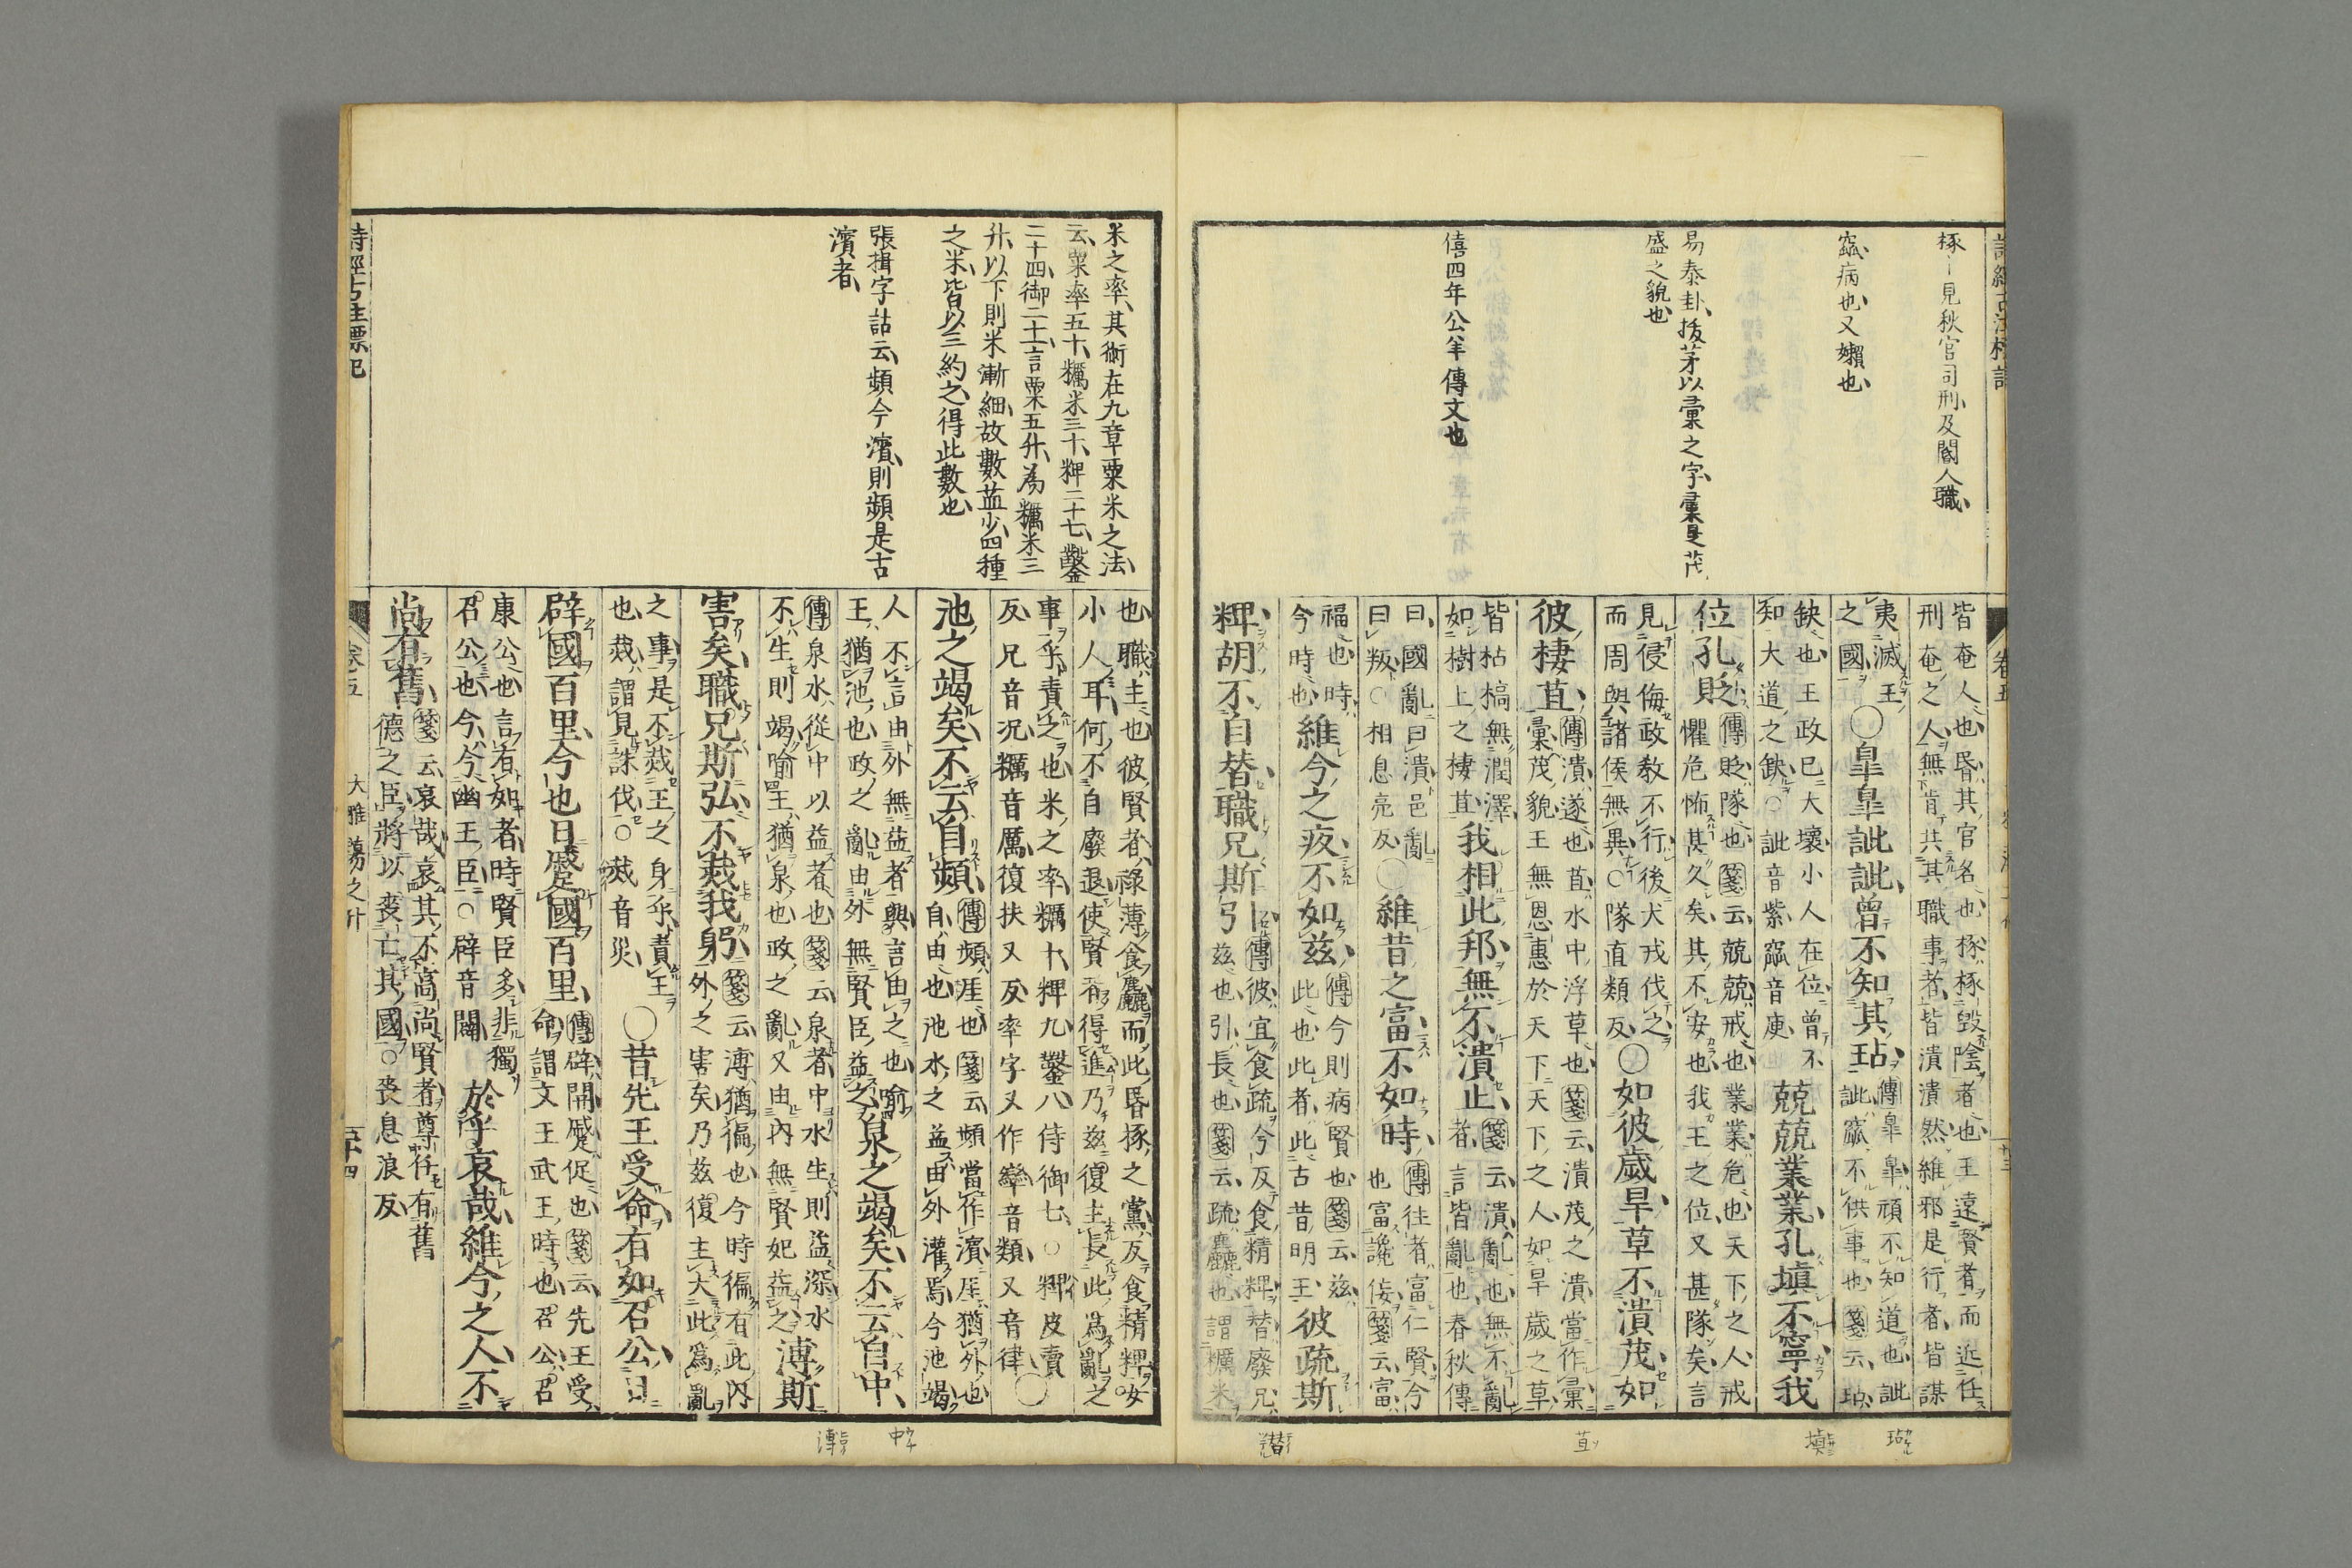 椓丨見秋官司刑及閽人職
窳病也又嬾也
易泰卦拔茅以彙之字彙是茂
盛之貌也
僖四年公羊傳文也
皆奄人也昏其官名也椓椓毀陰者也王遠賢者而近任
刑奄之人無肯共其職事者皆潰潰然維邪是行者皆謀
夷滅王之國○皐皐訿訿曾不知其玷傳皐皐頑不知道也訿訿窳不供事也箋云玷
缺也王政已大壞小人在位曾不知大道之缺○訿音紫窳音庾兢兢業業孔塡不寧我
位孔貶傳貶隊也箋云兢兢戒也業業危也天下之人戒懼危怖甚久矣其不安也我王之位又甚隊矣言
見侵侮政敎不行後犬戎伐之而周與諸侯無異○隊直類反○如彼歲旱草不潰茂如
彼棲苴傳潰遂也苴水中浮草也箋云潰茂之潰當作彙彙茂貌王無恩惠於天下天下之人如旱歲之草
皆枯槁無潤澤如樹上之棲苴我相此邦無不潰止箋云潰亂也無不亂者言皆亂也春秋傳
曰國亂曰潰邑亂曰叛○相息亮反○維昔之富不如時傳往者富仁賢今也富讒佞箋云富
福也時今時也維今之疚不如茲傳今則病賢也箋云茲此也此者此古昔明王彼疏斯
粺胡不自替職兄斯引傳彼宜食疏今反食精粺替廢兄茲也引長也箋云疏麤也謂糲米
米之率其術在九章粟米之法
云粟率五十糲米三十粺二十七鑿
二十四御二十一言粟五升為糲米三
升以下則米漸細故數益少四種
之米皆以三約之得此數也
張揖字詁云頻今濱則頻是古
濱者
也職主也彼賢者祿薄食麤而此昏椓之黨反食精粺女
小人耳何不自廢退使賢者得進乃茲復主長此爲亂之
事乎責之也米之率糲十粺九鑿八侍御七○粺皮賣
反兄音況糲音厲復扶又反率字又作䢦音類又音律○
池之竭矣不云自頻傳頻厓也箋云頻當作濱厓猶外也自由也池水之益由外灌焉今池竭
人不言由外無益者與言由之也喻王猶池也政之亂由外無賢臣益之泉之竭矣不云自中
傳泉水從中以益者也箋云泉者中水生則益深水不生則竭喻王猶泉也政之亂又由內無賢妃益之溥斯
害矣職兄斯弘不烖我躬箋云溥猶徧也今時徧有此內外之害矣乃茲復主大此爲亂
之事是不烖王之身乎責王也烖謂見誅伐○烖音災○昔先王受命有如召公日
辟國百里今也日蹙國百里傳辟開蹙促也箋云先王受命謂文王武王時也召公召
康公也言有如者時賢臣多非獨召公也今今幽王臣○辟音闢於乎哀哉維今之人不
尚有舊箋云哀哉哀其不高尚賢者尊任有舊德之臣將以喪亡其國○喪息浪反
卷五
大雅蕩之什
詩經古註標記